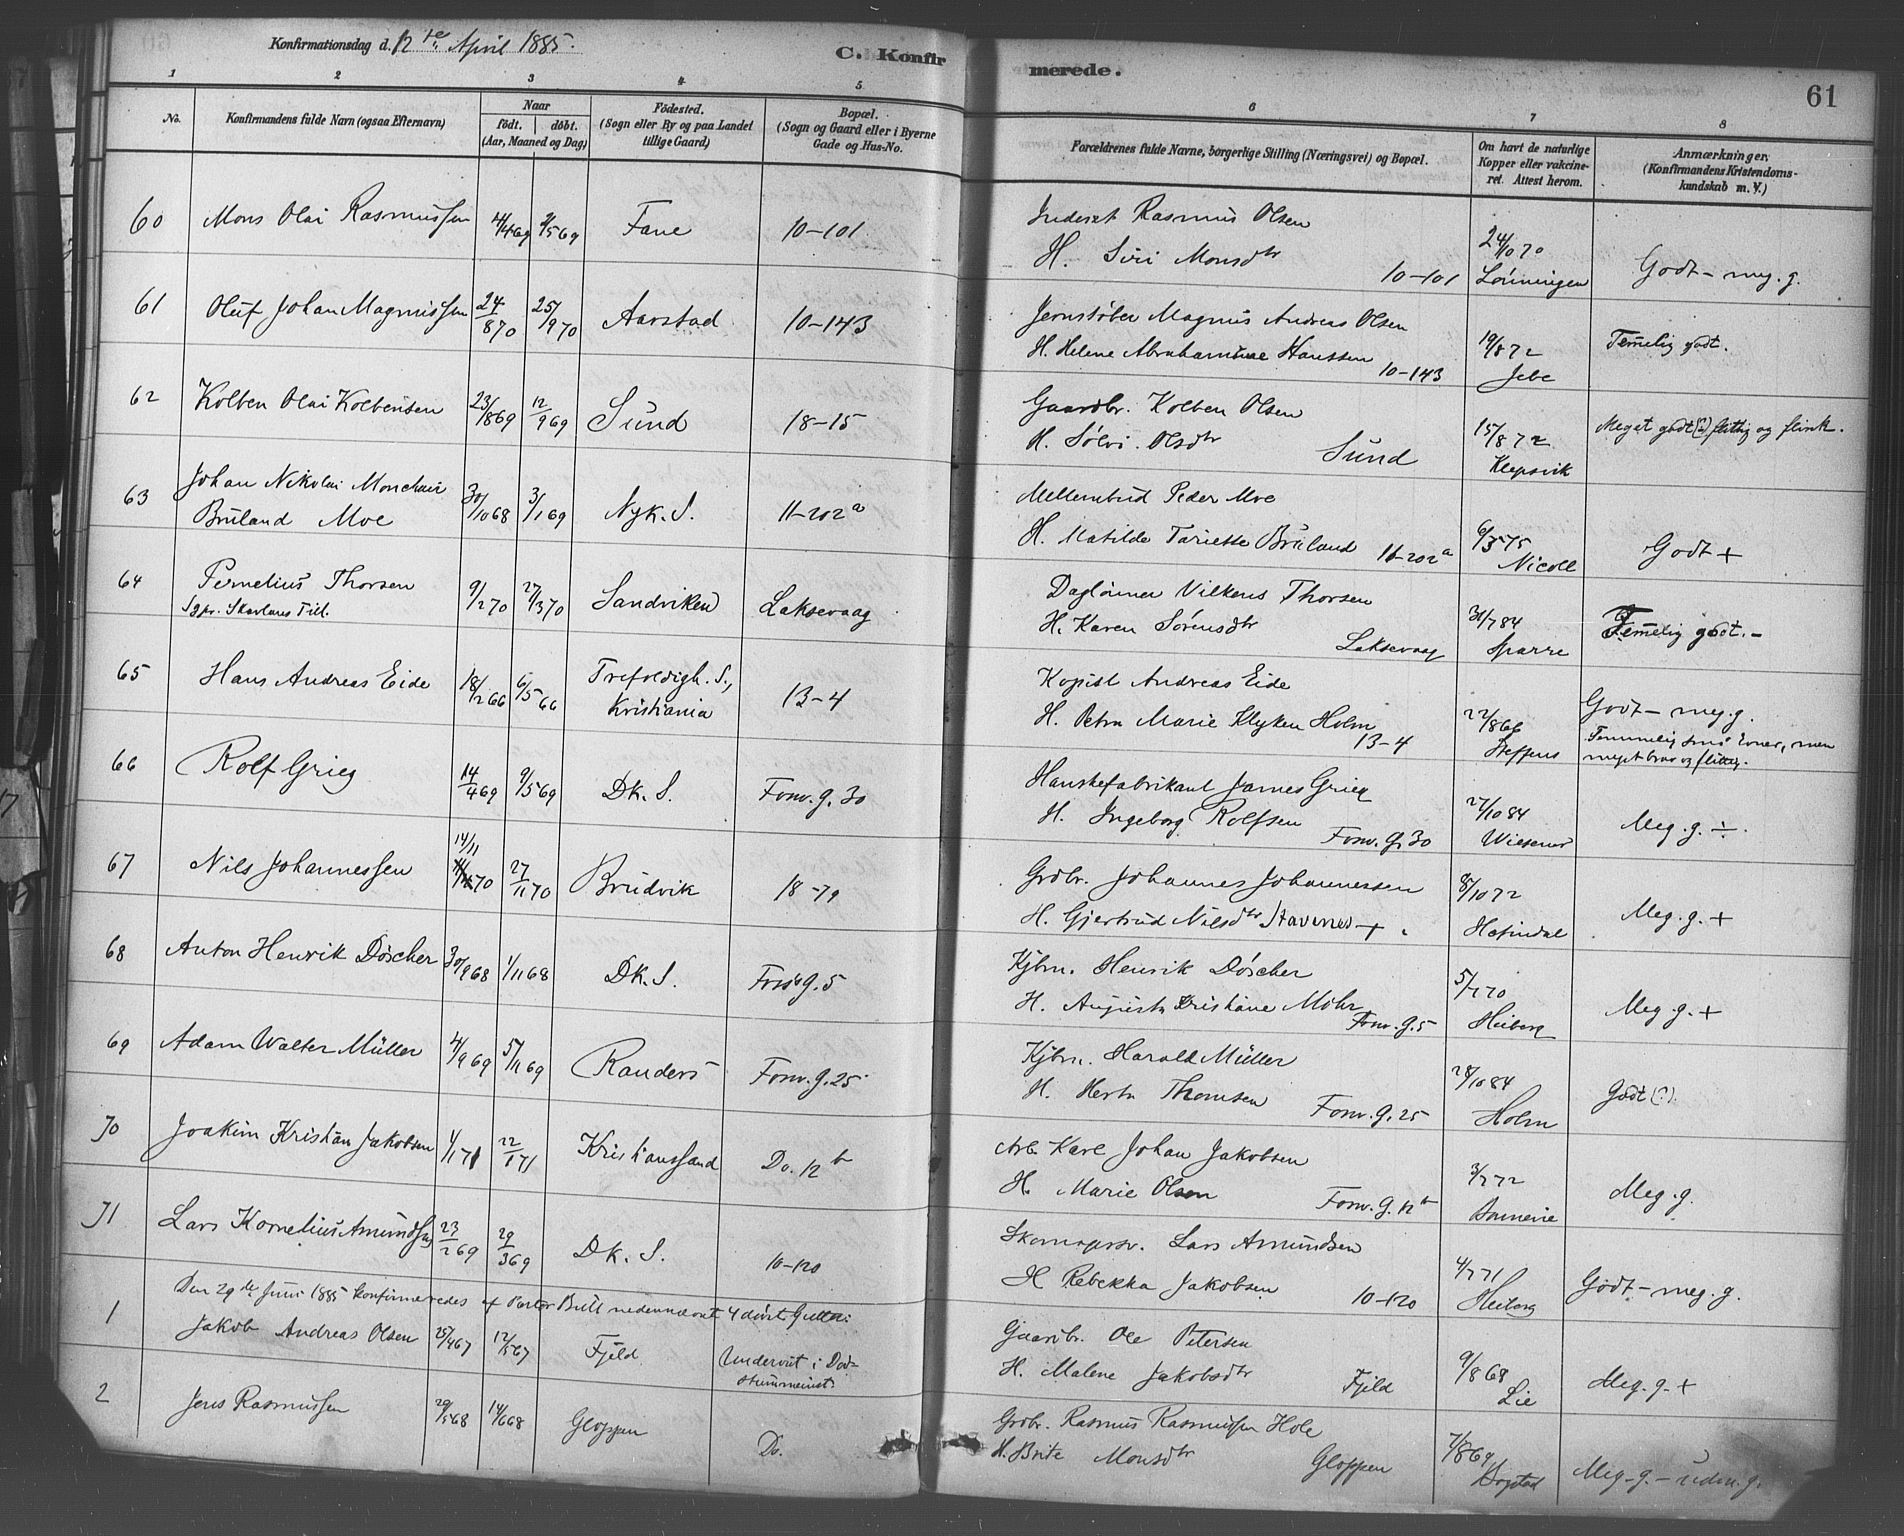 Konfirmationsdag d. 12te April 1885.
C. Konfirmerede.
61
1 2 3 4 5 6 7 8
No.
Konfirmandens fulde Navn (ogsaa Efternavn)
Naar
født. døbt.
(Aar, Maaned og Dag)
Födested.
(Sogn eller By og paa Landet
tillige Gaard)
Bopæl.
(Sogn og Gaard eller i Byerne
Gade og Hus-No.
Forældrenes fulde Navne, borgerlige Stilling (Næringsvei) og Bopæl.
Om havt de naturlige
Kopper eller vakcine-
ret. Attest herom.
Anmærkninger.
(Konfirmandens Kristendoms-
kundskab m. V.)
60 Mons Olai Rasmussen 14/4 69 9/5 69 Fane 10-101 Inderst Rasmus Olsen 24/10 70
H. Siri Monsdtr 10-101 Lönningen Godt - meg. g.
61 Oluf Johan Magnussen 24/8 70 25/9 70 Aarstad 10-143 Jernstøber Magnus Andreas Olsen 19/8 72 Temelig godt.
H. Helene Abrahamine Hanssen 10-143 Jebe
62 Kolben Olai Kolbensen 23/8 69 12/9 69 Sund 18-15 Gaardbr. Kolben Olsen 15/8 72 Meget godt (?) flittig og flink.
H. Sølvi Olsdtr Sund Klepsvik
63 Johan Nikolai Monclair
Bruland Moe 30/10 68 3/1 69 Nyk. S. 11-202a Mellembud Peder Moe 6/3 75
H. Matilde Tariette Bruland 11-202a Nicoll Godt +
64 Pernelius Thorsen 9/2 70 27/3 70 Sandviken Laksevaag Daglönner Vilkens Thorsen 31/7 84 Temelig godt. -
Sgpr. Skavlans Till.
H. Karen Sörensdtr Laksevaag Sparre
65 Hans Andreas Eide 18/2 66 6/5 66 Trefoldigh. S.,
Kristiania 13-4 Kopist Andreas Eide 22/8 66 Godt - meg. g.
H. Petra Marie Klyken Holm 13-4 Steffens Temmelig små Evner, men
meget brav og flittig.
66 Rolf Grieg 14/4 69 9/5 69 Dk. S. Fosw. G. 30 Hanskefabrikant James Grieg 27/10 84
H. Ingeborg Rolfsen Fosw. G. 30 Wiesener Meg. g. ÷.
67 Nils Johannessen 14/11 70 27/11 70 Brudvik 18-79 Grdbr. Johannes Johannessen 8/10 72
H. Gjertrud Nilsdtr Stavenes + Meg. g. +
68 Anton Henrik Döscher 30/9 68 1/11 68 Dk. S. Fosw. G. 5 Kjbm. Henrik Döscher 5/7 70
H. Augusta Kristiane Mohr Fosw. G. 5 Heiberg Meg. g. +
69 Adam Walter Müller 4/9 69 5/11 69 Randers Fosw. G. 25 Kjbm. Harald Müller 28/10 84
H. Herta Thomsen Fosw. G. 25 Holm Godt (?)
70 Joakim Kristian Jakobsen 4/1 71 22/1 71 Kristianssand Do. 12b Arb. Karl Johan Jakobsen 3/7 72
H. Marie Olsen Fosw. G. 12b Meg. g.
71 Lars Kornelius Amundsen 23/2 69 29/3 69 Dk. S. 10-120 Skomagersv. Lars Amundsen 4/7 71
H. Rebekka Jakobsen 10-120 Heiberg Godt - meg. g.
Den 29de Juni 1885 konfirmeredes af Pastor Bull nedennævnt 4 døvst. Gutter:
1 Jakob Andreas Olsen 25/4 67 12/5 67 Fjeld Undervist i Døv-
stummeinst. Gaardbr. Ole Petersen 9/8 68
H. Malene Jakobsdtr Fjeld Lie Meg. g. +
2 Jens Rasmussen 29/5 68 14/6 68 Gloppen Do. Grdbr. Rasmus Rasmussen Hole 7/8 69
H. Brite Monsdtr Gloppen Meg. g. - udm. g.